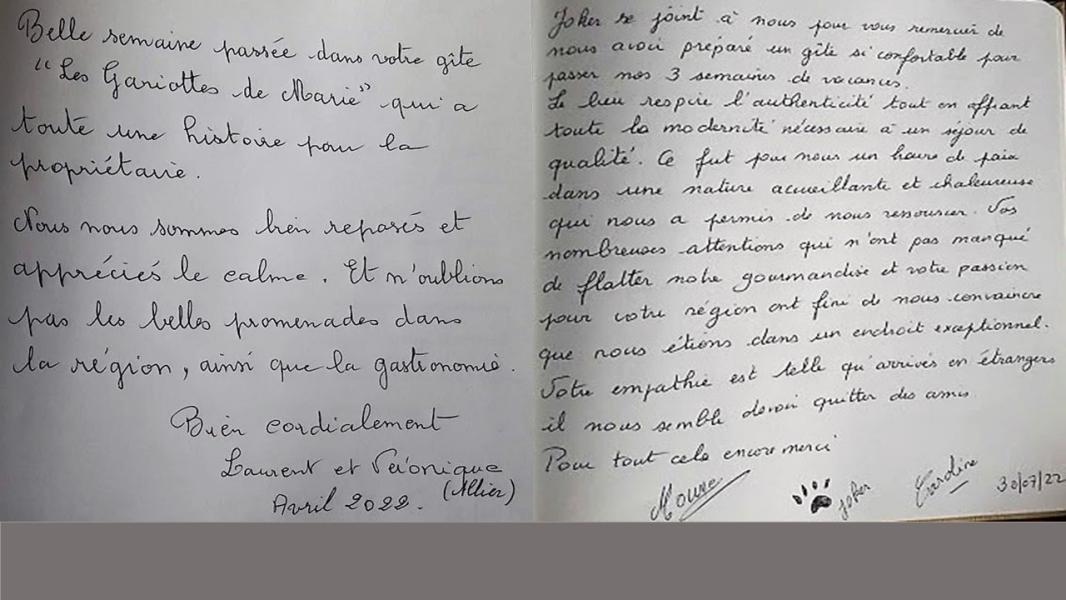 Belle semaine passée dans votre gîte
"Les Gariottes de Marie" qui a
toute une histoire pour la
propriétaire.
Nous nous sommes bien reposés et
appréciés le calme. Et n'oublions
pas les belles promenades dans
la région, ainsi que la gastronomie.
Bien cordialement
Laurent et Véronique
(Allier)
Avril 2022.
Joker se joint à nous pour vous remercier de
nous avoir préparé un gîte si confortable pour
passer nos 3 semaines de vacances.
Le lieu respire l'authenticité tout en offrant
toute la modernité nécessaire à un séjour de
qualité. Ce fut pour nous un havre de paix
dans une nature accueillante et chaleureuse
qui nous a permis de nous ressourcer. Vos
nombreuses attentions qui n'ont pas manqué
de flatter notre gourmandise et votre passion
pour votre région ont fini de nous convaincre
que nous étions dans un endroit exceptionnel.
Votre empathie est telle qu'arrivés en étrangers
il nous semble devoir quitter des amis.
Pour tout cela encore merci
Joker
30/07/22